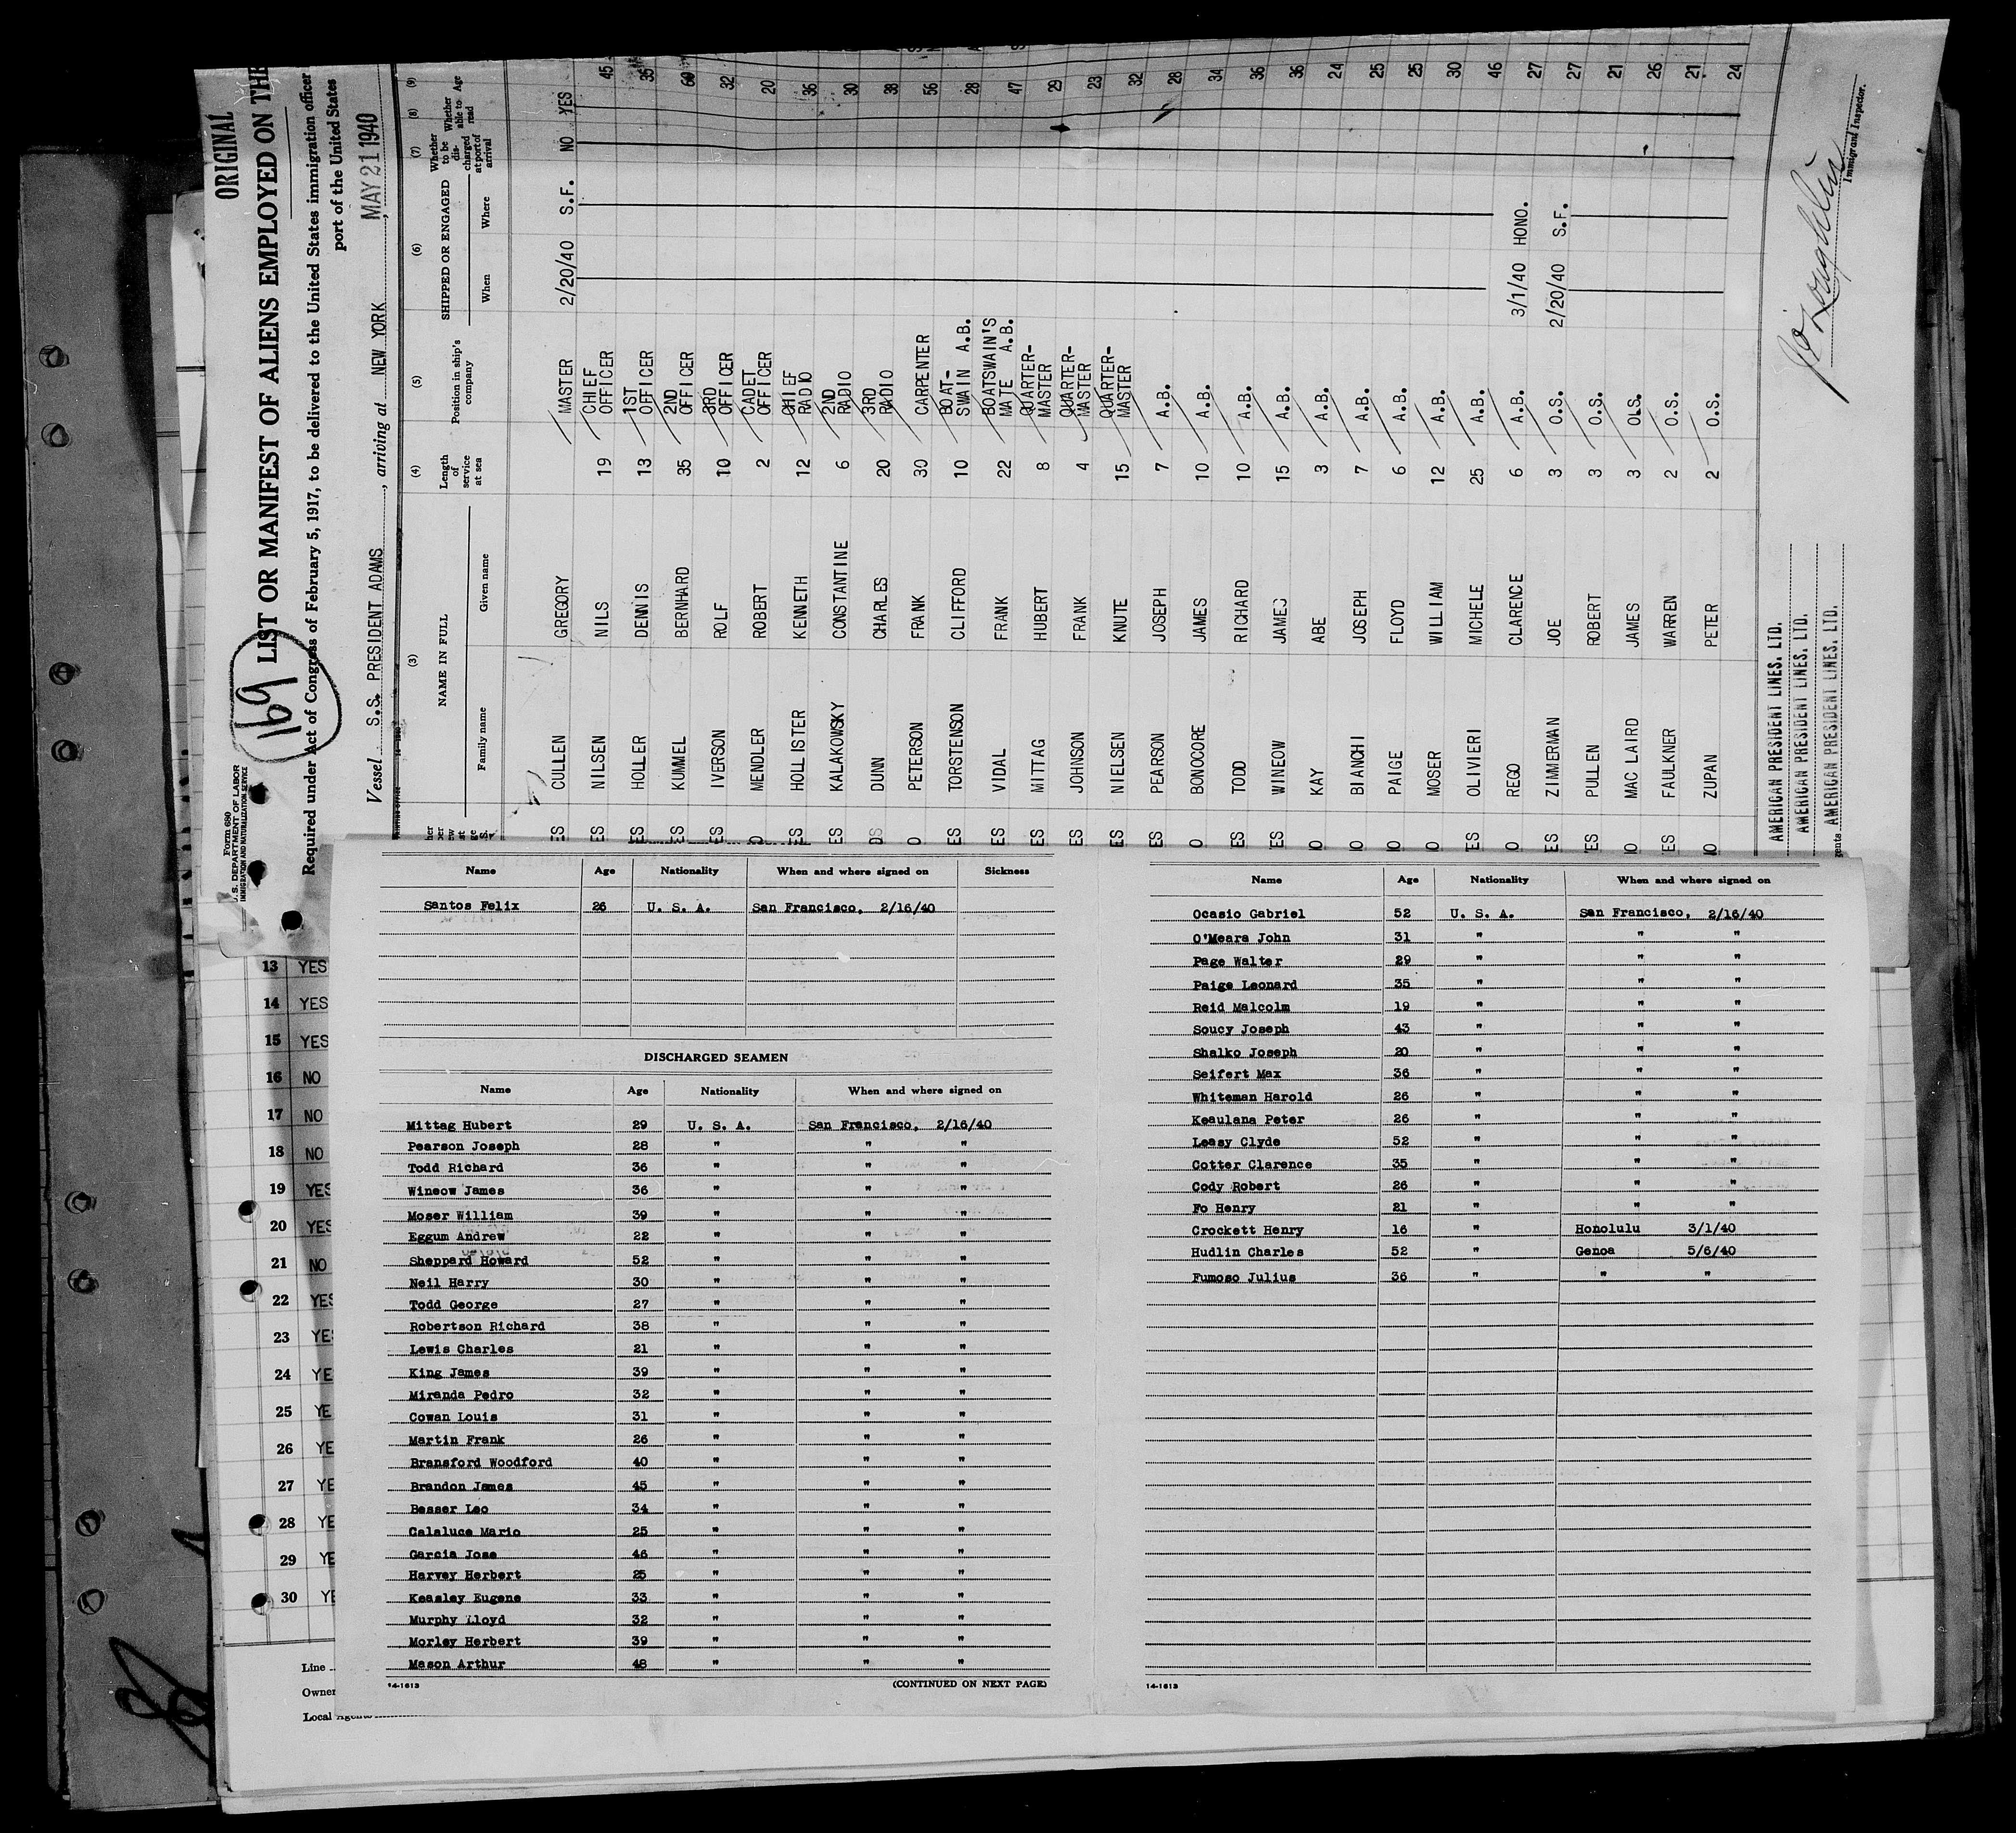 ORIGINAL
Form 680
U.S. DEPARTMENT OF LABOR
IMMIGRATION AND NATURALIZATION SERVICE
169
LIST OR MANIFEST OF ALIENS EMPLOYED ON THE
Required under Act of Congress of February 5, 1917, to be delivered to the United States immigration officer
port of the United States
Vessel S.S. PRESIDENT ADAMS, arriving at NEW YORK, MAY 21 1940
(3) (4) (5) (6) (7) (8) (9)
NAME IN FULL
Family name Given name
Length of service at sea
Position in ship's company
SHIPPED OR ENGAGED
When Where
Whether to be discharged at port of arrival
Whether able to read
Age
ES CULLEN GREGORY MASTER 2/20/40 S.F. NO YES
ES NILSEN NILS 19 CHIEF OFFICER 45
ES HOLLER DENNIS 13 1ST OFFICER 35
ES KUMMEL BERNHARD 35 2ND OFFICER 60
ES IVERSON ROLF 10 3RD OFFICER 32
O MENDLER ROBERT 2 CADET OFFICER 20
ES HOLLISTER KENNETH 12 CHIEF RADIO 36
ES KALAKOWSKY CONSTANTINE 6 2ND RADIO 30
DUNN CHARLES 20 3RD RADIO 38
O PETERSON FRANK 30 CARPENTER 56
ES TORSTENSON CLIFFORD 10 BOAT-SWAIN A.B. 28
ES VIDAL FRANK 22 BOATSWAIN'S MATE A.B. 47
ES MITTAG HUBERT 8 QUARTER-MASTER 29
ES JOHNSON FRANK 4 QUARTER-MASTER 23
ES NIELSEN KNUTE 15 QUARTER-MASTER 32
ES PEARSON JOSEPH 7 A.B. 28
O BONOCORE JAMES 10 A.B. 34
ES TODD RICHARD 10 A.B. 36
ES WINEOW JAMES 15 A.B. 36
O KAY ABE 3 A.B. 24
O BIANCHI JOSEPH 7 A.B. 25
O PAIGE FLOYD 6 A.B. 25
O MOSER WILLIAM 12 A.B. 30
ES OLIVIERI MICHELE 25 A.B. 46
O REGO CLARENCE 6 A.B. 3/1/40 HONO. 27
ES ZIMMERMAN JOE 3 O.S. 2/20/40 S.F. 27
ES PULLEN ROBERT 3 O.S. 21
O MAC LAIRD JAMES 3 O.S. 26
ES FAULKNER WARREN 2 O.S. 21
O ZUPAN PETER 2 O.S. 24
AMERICAN PRESIDENT LINES. LTD.
AMERICAN PRESIDENT LINES. LTD.
AMERICAN PRESIDENT LINES. LTD.
Immigrant Inspector.
13 YES
14 YES
15 YES
16 NO
17 NO
18 NO
19 YES
20 YES
21 NO
22 YES
23 YES
24 YE
25 YE
26 YE
27 YE
28 YE
29 YE
30 YE
Line
Owner
Local Agents
Name Age Nationality When and where signed on Sickness
Santos Felix 26 U. S. A. San Francisco, 2/16/40
DISCHARGED SEAMEN
Name Age Nationality When and where signed on
Mittag Hubert 29 U. S. A. San Francisco, 2/16/40
Pearson Joseph 28 " " "
Todd Richard 36 " " "
Wineow James 36 " " "
Moser William 39 " " "
Eggum Andrew 22 " " "
Sheppard Howard 52 " " "
Neil Harry 30 " " "
Todd George 27 " " "
Robertson Richard 38 " " "
Lewis Charles 21 " " "
King James 39 " " "
Miranda Pedro 32 " " "
Cowan Louis 31 " " "
Martin Frank 26 " " "
Bransford Woodford 40 " " "
Brandon James 45 " " "
Besser Leo 34 " " "
Calaluce Mario 25 " " "
Garcia Jose 46 " " "
Harvey Herbert 25 " " "
Keasley Eugene 33 " " "
Murphy Lloyd 32 " " "
Morley Herbert 39 " " "
Mason Arthur 48 " " "
14-1613 (CONTINUED ON NEXT PAGE)
Name Age Nationality When and where signed on
Ocasio Gabriel 52 U. S. A. San Francisco, 2/16/40
O'Meara John 31 " " "
Page Walter 29 " " "
Paige Leonard 35 " " "
Reid Malcolm 19 " " "
Soucy Joseph 43 " " "
Shalko Joseph 20 " " "
Seifert Max 36 " " "
Whiteman Harold 26 " " "
Keaulana Peter 26 " " "
Leasy Clyde 52 " " "
Cotter Clarence 35 " " "
Cody Robert 26 " " "
Fo Henry 21 " " "
Crockett Henry 16 " Honolulu 3/1/40
Hudlin Charles 52 " Genoa 5/6/40
Fumoso Julius 36 " " "
14-1613